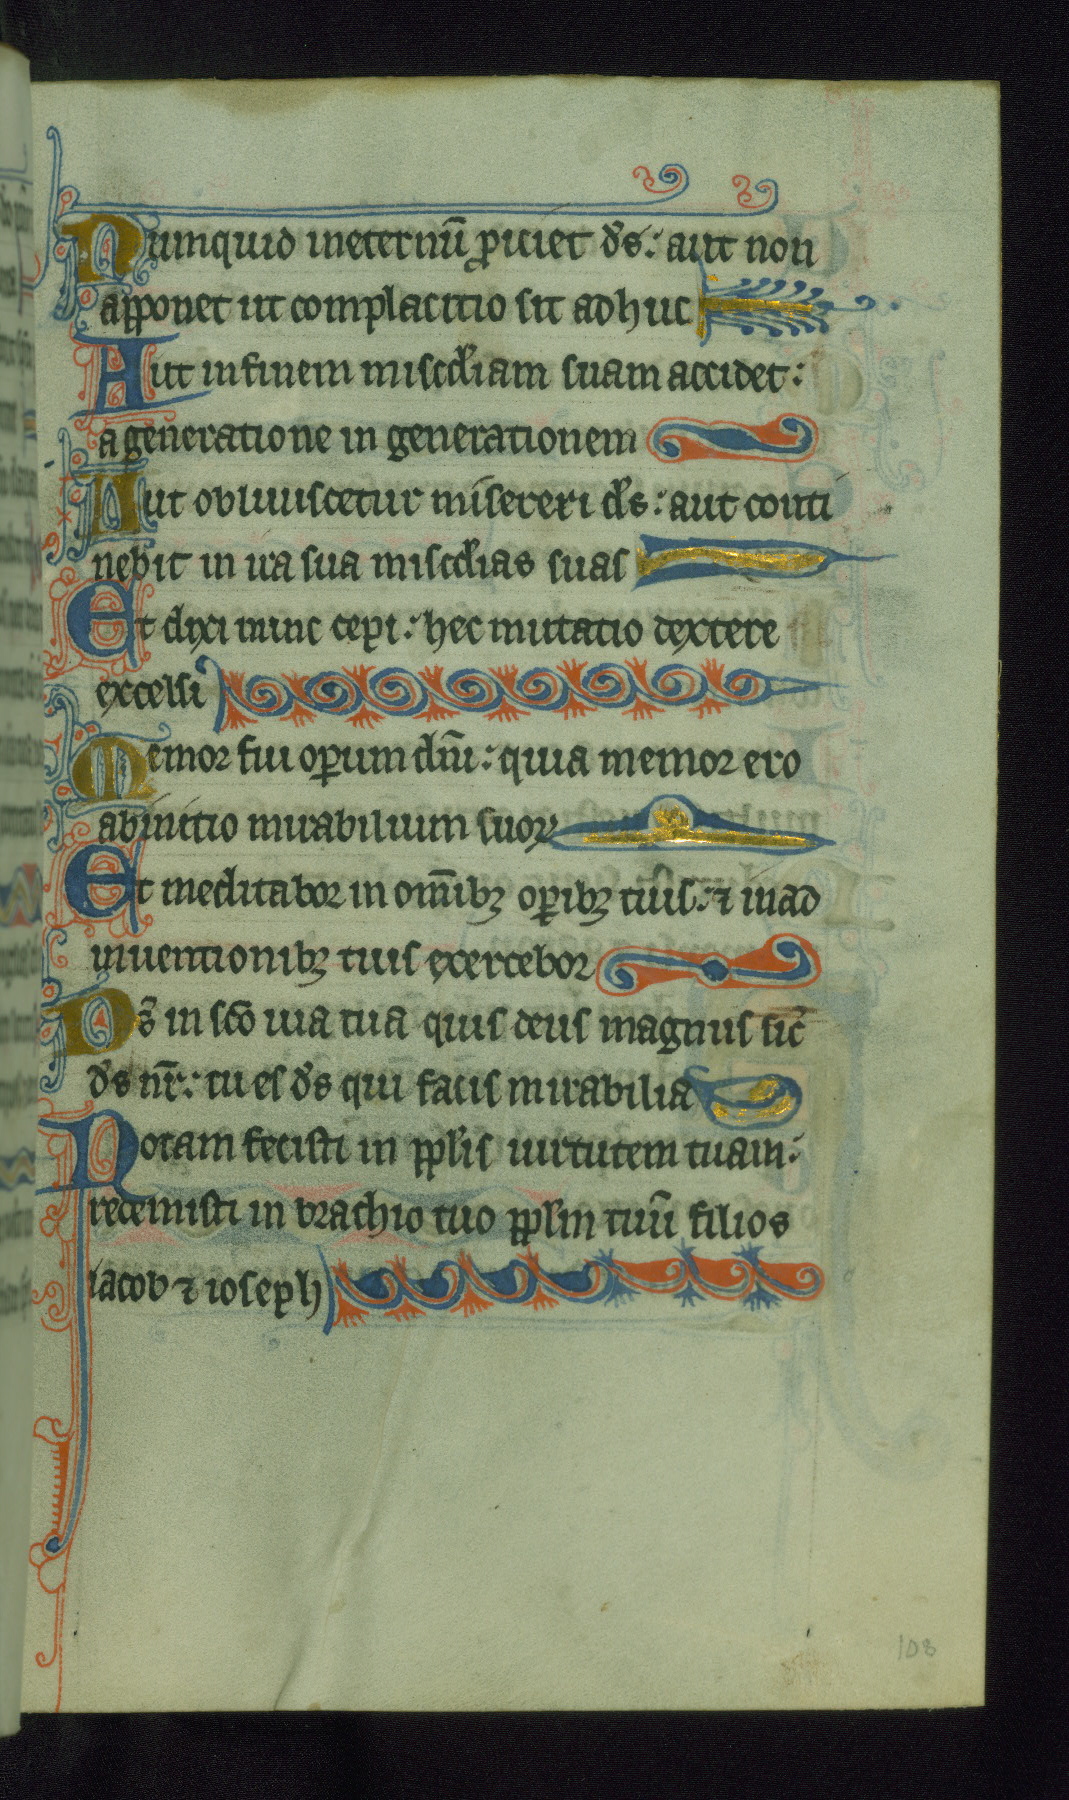 Numquid ineternū ꝓiciet d̄s: aut non
apponet ut complacitio sit adhuc
Aut infinem misc̄diam suam accidet:
a generatione in generationem
Aut obliuiscetur misereri d̄s: aut conti
nebit in ira sua misc̄dias suas
Et dixi nunc cepi: hec mutatio dextere
excelsi
Memor fui oꝑum dn̄i: quia memor ero
abinitio mirabilium suoꝝ
Et meditabor in om̄ibꝫ oꝑibꝫ tuis: ⁊ in ad
inuentionibꝫ tuis exercebor
Ds̄ in sc̄o uia tua quis deus magnus sic̄
d̄s nr̄: tu es d̄s qui facis mirabilia
Notam fecisti in pp̄lis uirtutem tuam:
redemisti in brachio tuo pp̄lm tuū filios
iacob ⁊ ioseph
108